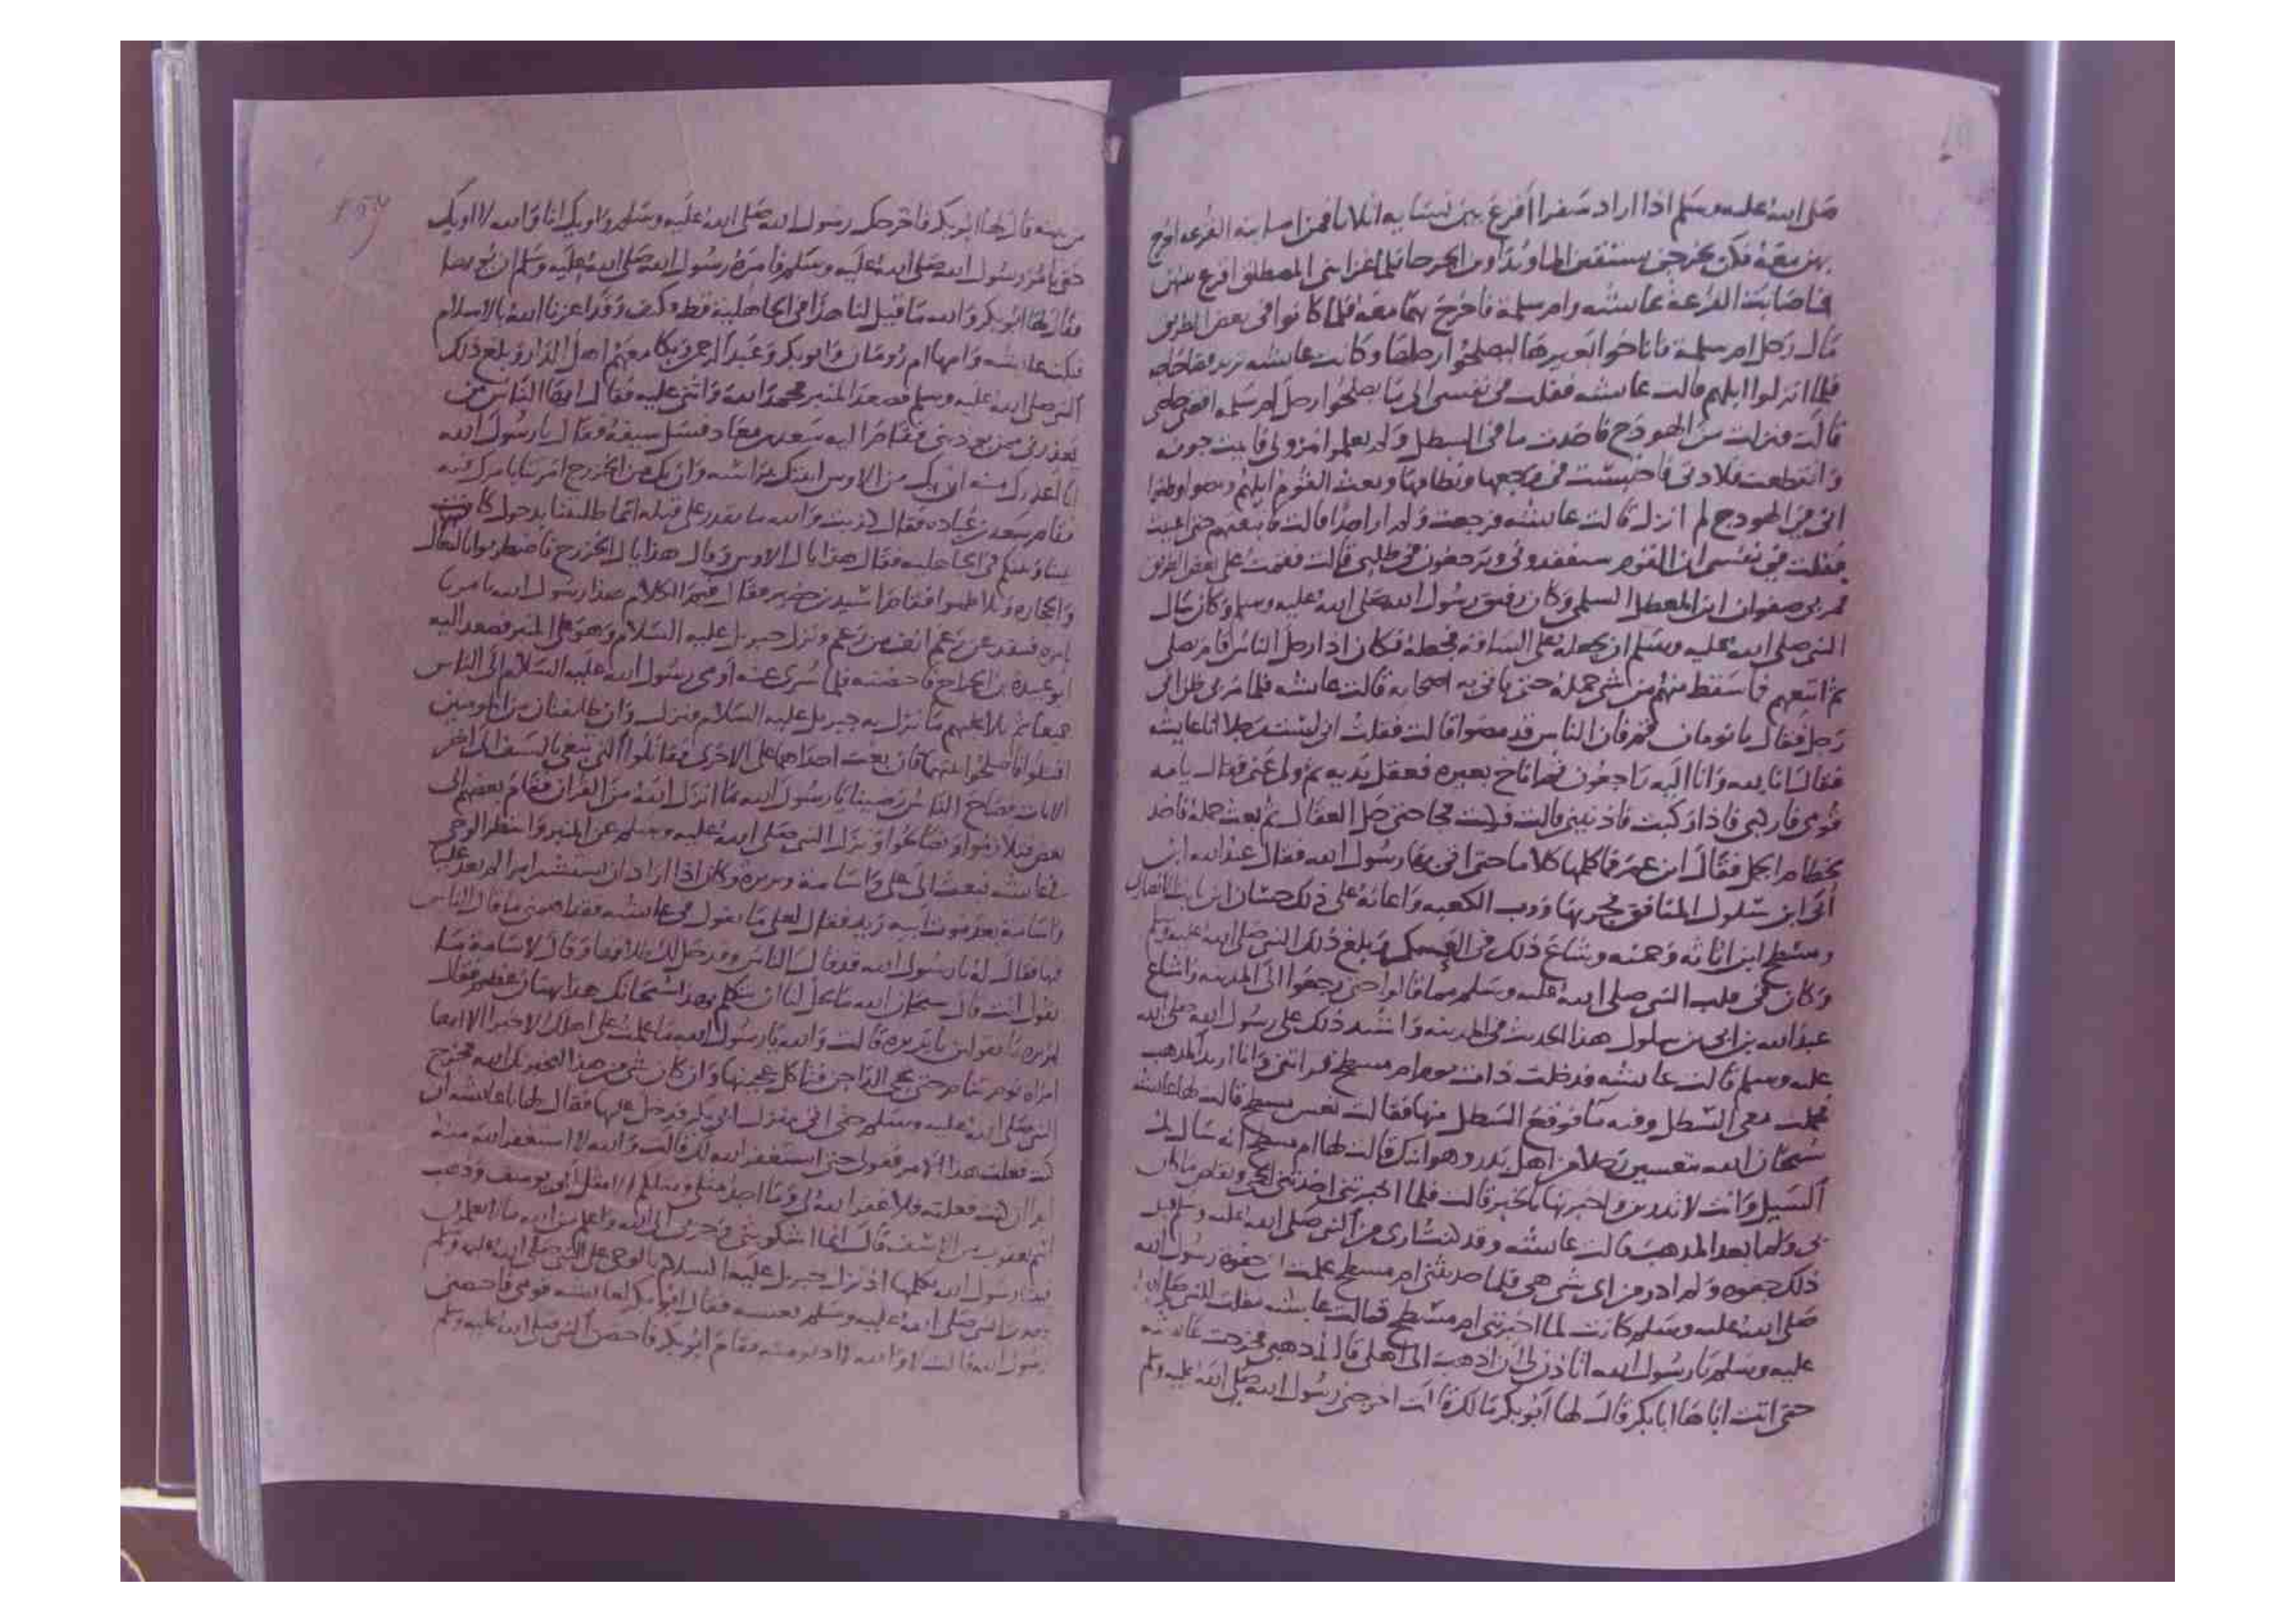 صلى الله عليه وسلم اذا اراد سفرا اقرع بين نسايه اثلاثا فمن اصابته القرعه اخرج
بهن معه فكن يخرجن يسقين الما ويداوين الجرحا فلما غزا بنى المصطلق اقرع بينهن
فاصابت القرعة عايشه وام سلمة فاخرج بهما معه فلما كانوا فى بعض الطريق
مال رحل ام سلمة فاناخوا بعيرها ليصلحوا رحلها وكانت عايشه تريد قضا حاجه
فلما انزلوا ابلهم قالت عايشه فقلت فى نفسى الى ما يصلحوا رحل ام سلمه اقضى حاجتى
قالت فنزلت من الهودج فاخذت ما فى السطل ولم يعلموا بنزولى فاتيت خربه
وانقطعت قلادتى فاحتبست فى جمعها ونظامها وبعث القوم ابلهم ومضوا وظنوا
انى فى الهودج لم انزل قالت عايشه فرجعت ولم ار احدا قالت فاتبعتهم حتى اعييت
فقلت فى نفسى ان القوم سيفقدونى ويرجعون فى طلبى قالت فقمت على بعض الطريق
فمر بى صفوان ابن المعطل السلمى وكان رفيق رسول الله صلى الله عليه وسلم وكان سال
النبى صلى الله عليه وسلم ان يجعله على الساقه فجعله فكان اذا رحل الناس قام يصلى
ثم اتبعهم فما سقط منهم من شى حمله حتى ياتى به اصحابه قالت عايشه فلما مر بى ظن انى
رجل فقال يا نومان قم فان الناس قد مضوا قالت فقلت انى لست رجلا انا عايشه
فقال انا لله وانا اليه راجعون ثم اناخ بعيره فعقل يديه ثم ولى عنى فقال يا امه
قومى فاركبى فاذا ركبت فاذنينى قالت فركبت فجا حتى حل العقال ثم بعث جمله فاخذ
بخطام الجمل فقال ابن عمر فما كلمها كلاما حتى اتى بها رسول الله فقال عبد الله ابن
ابى ابن سلول المنافق فجر بها ورب الكعبه واعانه على ذلك حسان ابن ثابت الانصارى
ومسطح ابن اثاثه وحمنه وشاع ذلك فى العسكر وبلغ ذلك النبى صلى الله عليه وسلم
وكان فى قلب النبى صلى الله عليه وسلم مما قالوا حتى رجعوا الى المدينه واشاع
عبد الله بن ابى بن سلول هذا الحديث فى المدينه واشتد ذلك على رسول الله صلى الله
عليه وسلم قالت عايشه فدخلت ذات يوم ام مسطح فراتنى وانا اريد المذهب
فحملت معى السطل وفيه ما فوقع السطل منها فقالت تعس مسطح قالت لها عايشه
سبحان الله تتعسين رجلا من اهل بدر وهو ابنك قالت لها ام مسطح انه سال بك
السيل وانت لا تدرين واخبرتها بالخبر قالت فلما اخبرتنى اخذتنى الحمى وتقلص ما كان
بى ولم ابعد المذهب قالت عايشه وقد كنت ارى من النبى صلى الله عليه وسلم قبل
ذلك جفوه ولم ادر من اى شى هى فلما حدثتنى ام مسطح علمت ان جفوه رسول الله
صلى الله عليه وسلم كانت لما اخبرتنى ام مسطح قالت عايشه فقلت للنبى صلى الله
عليه وسلم يا رسول الله اتاذن لى ان اذهب الى اهلى قال اذهبى فخرجت عايشه
حتى اتت اباها ابا بكر قال لها ابو بكر ما لك قالت اخرجنى رسول الله صلى الله عليه وسلم
159
من بيته قال لها ابو بكر فاخرجك رسول الله صلى الله عليه وسلم واويك انا والله لا اويك
حتى يامر رسول الله صلى الله عليه وسلم فامره رسول الله صلى الله عليه وسلم ان يوويها
فقال لها ابو بكر والله ما قيل لنا هذا فى الجاهلية قط فكيف وقد اعزنا الله بالاسلام
فبكت عايشه وامها ام رومان وابو بكر وعبد الرحمن وبكا معهم اهل الدار وبلغ ذلك
النبى صلى الله عليه وسلم فصعد المنبر فحمد الله واثنى عليه فقال ايها الناس من
يعذرنى ممن يوذينى فقام اليه سعد بن معاد فسل سيفه وقال يا رسول الله
انا اعذرك منه ان يك من الاوس اتيتك براسه وان يك من الخزرج امرتنا بامرك فيه
فقام سعد بن عباده فقال كذبت والله ما تقدر على قتله انما طلبتنا بدخول كانت
بيننا وبينكم فى الجاهليه فقال هذا يال الاوس وقال هذا يال الخزرج فاضطربوا بالنعال
والحجاره وتلاطموا فقام اسيد بن حضير فقال فيم الكلام هذا رسول الله يامرنا
بامره فننفذ عن رغم انف من رغم ونزل جبريل عليه السلام وهو على المنبر فصعد اليه
ابو عبيدة بن الجراح فاحتضنه فلما سرى عنه اومى رسول الله عليه السلام الى الناس
جميعا ثم تلا عليهم ما نزل به جبريل عليه السلام فنزل وان طايفتان من المومنين
اقتتلوا فاصلحوا بينهما فان بغت احداهما على الاخرى فقاتلوا التى تبغى بالسيف الى اخر
الايات فصاح الناس رضينا يا رسول الله بما انزل الله من القران فقام بعضهم الى
بعض فتلازموا وتصالحوا ونزل النبى صلى الله عليه وسلم عن المنبر وانتظر الوحى
فى عايشه فبعث الى على واسامة وبريره وكان اذا اراد ان يستشير امرا لم يعد عليا
واسامة بعد موت ابيه زيد فقال لعلى ما تقول فى عايشه فقد اهمنى ما قال الناس
فيها فقال له يا رسول الله قد قال الناس وقد حل لك طلاقها وقال لاسامة ما
تقول انت قال سبحان الله ما يحل لنا ان نتكلم بهذا سبحانك هذا بهتان عظيم فقال
لبريره ما تقولين يا بريره قالت والله يا رسول الله ما علمت على اهلك الا خيرا الا انها
امراه نوم تنام حتى تجى الداجن فتاكل عجينها وان كان شى من هذا ليخبرنك الله فخرج
النبى صلى الله عليه وسلم حتى اتى منزل ابى بكر فدخل عليها فقال لها يا عايشه ان
كنت فعلت هذا الامر فقولى حتى استغفر الله لك قالت والله لا استغفر الله منه
ابدا ان كنت فعلته فلا غفر الله لى وما اجد مثلى ومثلكم الا مثل ابى يوسف وذهب
اسم يعقوب من الاسف قال انما اشكو بثى وحزنى الى الله واعلم من الله ما لا تعلمون
فبينا رسول الله يكلمها اذ نزل جبريل عليه السلام بالوحى على النبى صلى الله عليه وسلم
النبى صلى الله عليه وسلم نعسه فقال ابو بكر لعايشه قومى فاحضنى
رسول الله قالت لا والله لا ادنو منه فقام ابو بكر فاحضن النبى صلى الله عليه وسلم